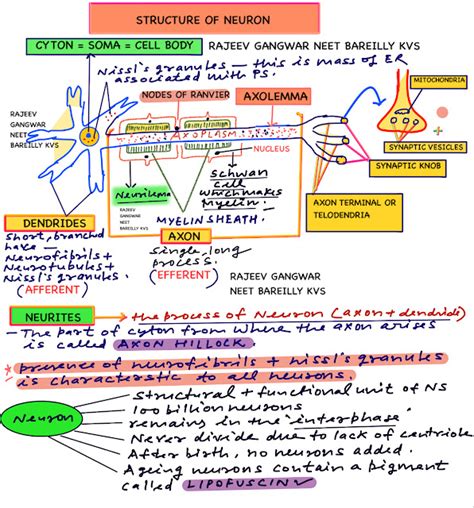 STRUCTURE OF NEURON
CYTON = SOMA = CELL BODY RAJEEV GANGWAR NEET BAREILLY KVS
Nissl's granules — this is mass of ER
associated with PS.
MITOCHONDRIA
NODES OF RANVIER
AXOLEMMA
RAJEEV
GANGWAR
NEET
BAREILLY KVS
AXOPLASM
NUCLEUS
SYNAPTIC VESICLES
SYNAPTIC KNOB
Schwan
cell
which makes
Myelin.
Neurilema
RAJEEV
GANGWAR
NEET
BAREILLY KVS
MYELIN SHEATH.
AXON TERMINAL OR
TELODENDRIA
DENDRIDES
Short, branchd
have —
Neurofibrils +
Neurotubules +
Nissl's granules.
(AFFERENT)
AXON
Single, long
process.
(EFFERENT)
RAJEEV GANGWAR
NEET BAREILLY KVS
NEURITES → the process of Neuron (axon + dendride)
– The part of cyton from where the axon arises
is called AXON HILLOCK.
* presence of neurofibrils + nissl's granules
is characterstic to all neurons.
Neuron
Structural + functional unit of NS
100 billion neurons
remains in the interphase.
Never divide due to lack of centriole
After birth, no neurons added.
Ageing neurons contain a pigment
called LIPOFUSCINV